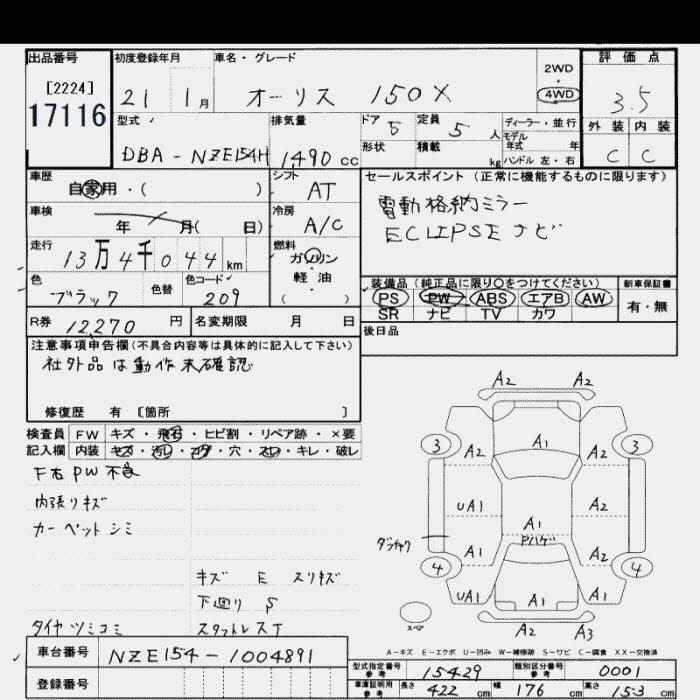 出品番号 初度登録年月 車名・グレード 2WD 評価点
[2224] 21 1月 オーリス 150X 4WD 3.5
17116 型式 排気量 ドア 5 定員 5人 ディーラー・並行 外装 内装
DBA-NZE154H 1490 cc 形状 積載 kg モデル年式 年 ハンドル 左・右 C C
車歴 自家用・( ) シフト AT セールスポイント (正常に機能するものに限ります)
車検 年 月( 日) 冷房 A/C 電動格納ミラー
走行 13万4千044 km 燃料 ガソリン ECLIPSEナビ
色 ブラック 色替 色コード 209 軽油 ( )
装備品 (純正品に限り○をつけてください) 新車保証書
PS PW ABS エアB AW 有・無
SR ナビ TV カワ
R券 12,270 円 名変期限 月 日 後日品
注意事項申告欄(不具合内容等は具体的に記入して下さい)
社外品は動作未確認
修復歴 有 〔箇所 〕
検査員 FW キズ・飛石・ヒビ割・リペア跡・×要
記入欄 内装 キズ・汚レ・コゲ・穴・スレ・キレ・破レ
F右PW不良
内張リキズ
カーペットシミ
キズ E スリキズ
下廻り S
タイヤツミコミ スタットレスT
A2 A2
3 A2 A1 A2 3
UA1 A2
A1
ダッチャク A1 Pハゲ A2
4 4
UA1 A1 A1
スペア A2 A3
A-キズ E-エクボ U-凹み W-補修跡 S-サビ C-腐食 XX-交換済
車台番号 NZE154-1004891
登録番号
型式指定番号 参考 15429 類別区分番号 参考 0001
車庫証明用 参考 長さ 422 cm 幅 176 cm 高さ 153 cm